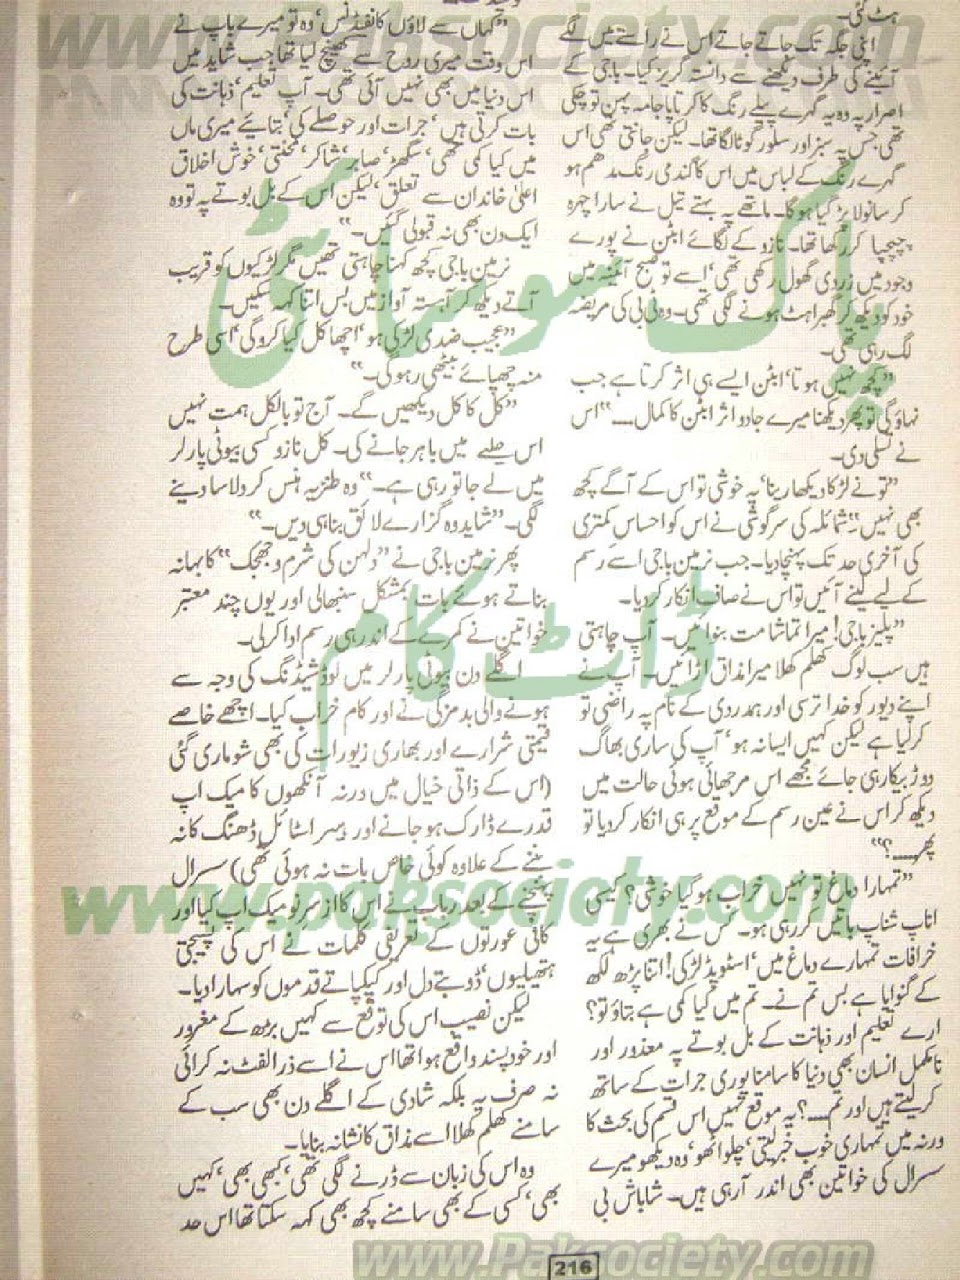 ہٹ گئی۔
اپنی جگہ تک جاتے جاتے اس نے راستے میں لگے
آئینے کی طرف دیکھنے سے دانستہ گریز کیا۔ باجی کے
اصرار پہ وہ یہ گہرے پیلے رنگ کا کرتا پاجامہ پہن تو چکی
تھی جس پہ سبز اور سلور گوٹا لگا تھا۔ لیکن جانتی تھی اس
گہرے رنگ کے لباس میں اس کا گندمی رنگ مدھم ہو
کر سانولا پڑ گیا ہوگا۔ ماتھے پہ بہتے تیل نے سارا چہرہ
چپچپا کر رکھا تھا۔ نازو کے لگائے ابٹن نے پورے
وجود میں زردی گھول رکھی تھی‘ اسے تو صبح آئینہ میں
خود کو دیکھ کر گھبراہٹ ہونے لگی تھی۔ وہ ٹی بی کی مریضہ
لگ رہی تھی۔
”کچھ نہیں ہوتا‘ ابٹن ایسے ہی اثر کرتا ہے جب
نہاؤ گی تو پھر دیکھنا میرے جادو اثر ابٹن کا کمال....“ اس
نے تسلی دی۔
”تو نے لڑکا دیکھا رینا‘ یہ خوشی تو اس کے آگے کچھ
بھی نہیں۔“ شمائلہ کی سرگوشی نے اس کو احساس کمتری
کی آخری حد تک پہنچا دیا۔ جب نرمین باجی اسے رسم
کے لیے لینے آئیں تو اس نے صاف انکار کر دیا۔
”پلیز باجی! میرا تماشا مت بنوائیں۔ آپ چاہتی
ہیں سب لوگ کھلم کھلا میرا مذاق اڑائیں۔ آپ نے
اپنے دیور کو خدا ترسی اور ہمدردی کے نام پہ راضی تو
کر لیا ہے لیکن کہیں ایسا نہ ہو‘ آپ کی ساری بھاگ
دوڑ بیکار ہی جائے مجھے اس مرجھائی ہوئی حالت میں
دیکھ کر اس نے عین رسم کے موقع پر ہی انکار کر دیا تو
پھر....؟“
”تمہارا دماغ تو نہیں خراب ہو گیا خوشی؟ کیسی
اناپ شناپ باتیں کر رہی ہو۔ کس نے بھری ہے یہ
خرافات تمہارے دماغ میں‘ اسٹوپڈ لڑکی! اتنا پڑھ لکھ
کے گنوایا ہے بس تم نے۔ تم میں کیا کمی ہے بتاؤ تو؟
ارے تعلیم اور ذہانت کے بل بوتے پہ معذور اور
نامکمل انسان بھی دنیا کا سامنا پوری جرات کے ساتھ
کر لیتے ہیں اور تم....؟ یہ موقع نہیں اس قسم کی بحث کا
ورنہ میں تمہاری خوب خبر لیتی‘ چلو اٹھو‘ وہ دیکھو میرے
سسرال کی خواتین بھی اندر آ رہی ہیں۔ شاباش بی
”کہاں سے لاؤں کانفیڈنس‘ وہ تو میرے باپ نے
اس وقت میری روح سے کھینچ لیا تھا جب شاید میں
اس دنیا میں بھی نہیں آئی تھی۔ آپ تعلیم‘ ذہانت کی
بات کرتی ہیں‘ جرات اور حوصلے کی‘ بتائیے میری ماں
میں کیا کمی تھی‘ سگھڑ‘ صابر‘ شاکر‘ محنتی‘ خوش اخلاق
اعلیٰ خاندان سے تعلق‘ لیکن اس کے بل بوتے پہ تو وہ
ایک دن بھی نہ قبولی گئیں۔“
نرمین باجی کچھ کہنا چاہتی تھیں مگر لڑکیوں کو قریب
آتے دیکھ کر آہستہ آواز میں بس اتنا کہہ سکیں۔
”عجیب ضدی لڑکی ہو‘ اچھا کل کیا کرو گی‘ اسی طرح
منہ چھپائے بیٹھی رہو گی۔“
”کل کا کل دیکھیں گے۔ آج تو بالکل ہمت نہیں
اس حلیے میں باہر جانے کی۔ کل نازو کسی بیوٹی پارلر
میں لے جا تو رہی ہے۔“ وہ طنزیہ ہنس کر دلاسا دینے
لگی۔ ”شاید وہ گزارے لائق بنا ہی دیں۔“
پھر نرمین باجی نے ”دلہن کی شرم و جھجک“ کا بہانہ
بناتے ہوئے بات بمشکل سنبھالی اور یوں چند معتبر
خواتین نے کمرے کے اندر ہی رسم ادا کر لی۔
اگلے دن بیوٹی پارلر میں لوڈ شیڈنگ کی وجہ سے
ہونے والی بدمزگی نے اور کام خراب کیا۔ اچھے خاصے
قیمتی شرارے اور بھاری زیورات کی بھی شو ماری گئی
(اس کے ذاتی خیال میں ورنہ آنکھوں کا میک اپ
قدرے ڈارک ہو جانے اور ہیئر اسٹائل ڈھنگ کا نہ
بننے کے علاوہ کوئی خاص بات نہ ہوئی تھی) سسرال
پہنچنے کے بعد رباب نے اس کا از سر نو میک اپ کیا اور
کافی عورتوں کے تعریفی کلمات نے اس کی پسیجتی
ہتھیلیوں‘ ڈوبتے دل اور کپکپاتے قدموں کو سہارا دیا۔
لیکن نصیب اس کی توقع سے کہیں بڑھ کے مغرور
اور خود پسند واقع ہوا تھا اس نے اسے ذرا لفٹ نہ کرائی
نہ صرف یہ بلکہ شادی کے اگلے دن بھی سب کے
سامنے کھلم کھلا اسے مذاق کا نشانہ بنایا۔
وہ اس کی زبان سے ڈرنے لگی تھی‘ کبھی بھی‘ کہیں
بھی‘ کسی کے بھی سامنے کچھ بھی کہہ سکتا تھا اس حد
216
www.Paksociety.com
پاک سوسائٹی
ڈاٹ کام
www.paksociety.com
www.Paksociety.com